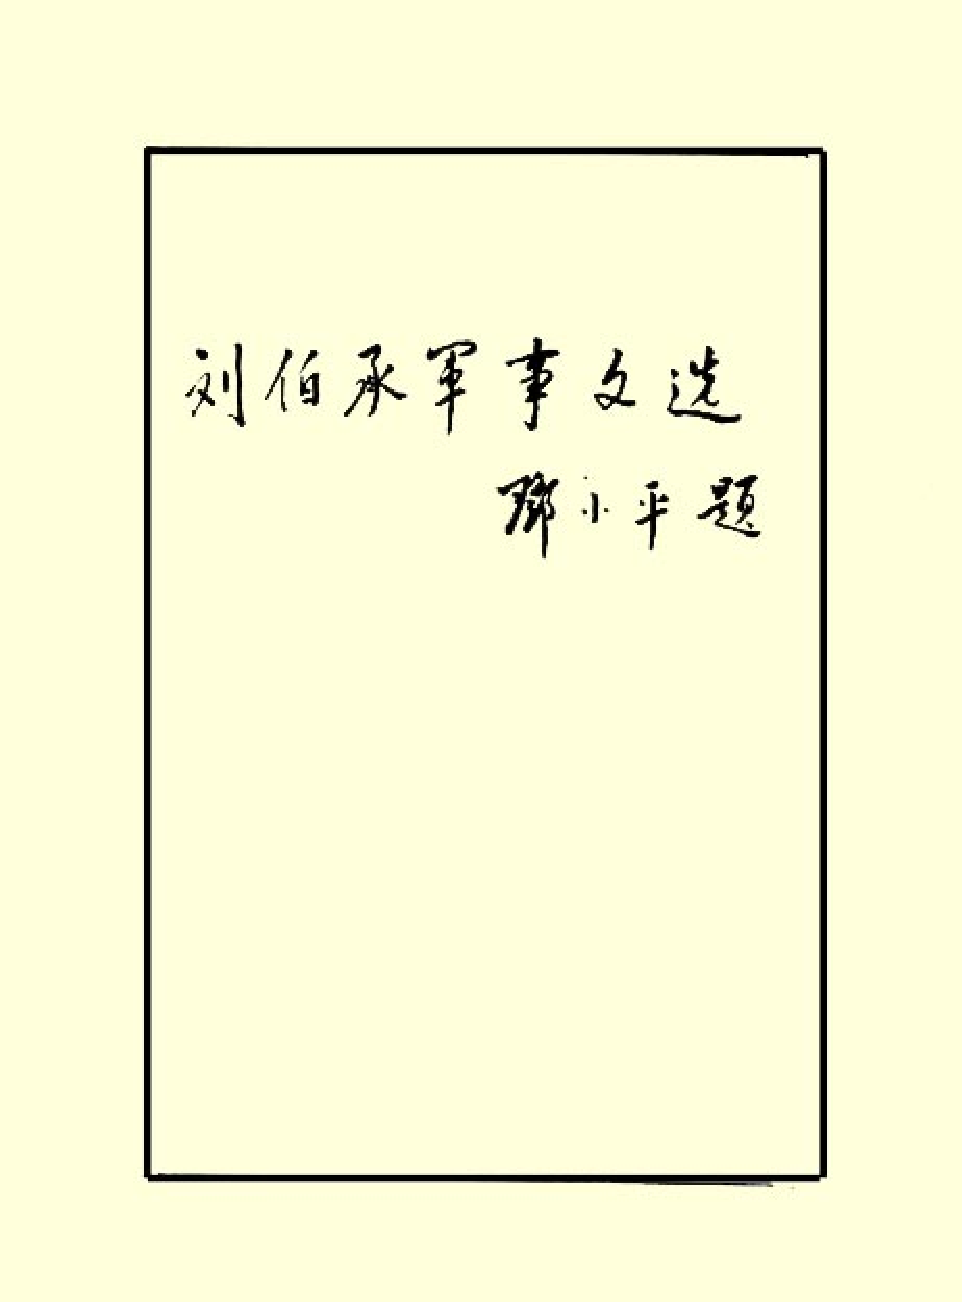 刘伯承軍事文选
鄧小平题